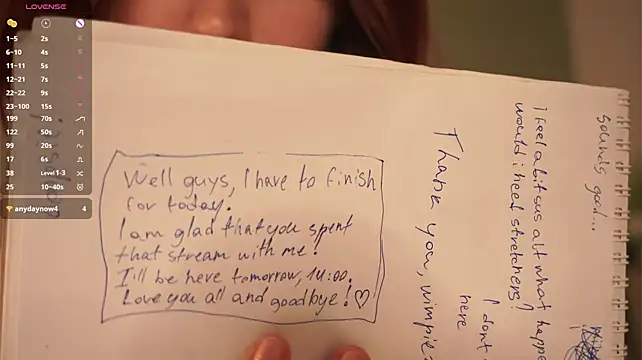 LOVENSE
1~5 2s
6~10 4s
11~11 5s
12~21 7s
22~22 9s
23~100 15s
199 70s
122 50s
99 20s
17 6s
38 Level 1-3
25 10~40s
anydaynow4 4
Well guys, I have to finish
for today.
I am glad that you spent
that stream with me!
I'll be here tomorrow, 14:00.
Love you all and goodbye! ♡
Thank you, wimpie
I dont
here
I feel a bit sus abt what happ
would i need stretchers?
sounds good...